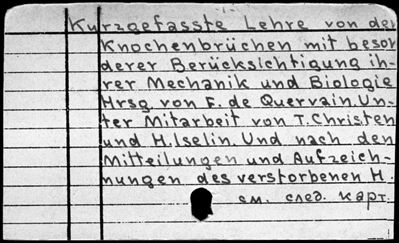 Kurzgefasste Lehre von den
Knochenbrüchen mit beson
derer Berücksichtigung ih-
rer Mechanik und Biologie
Hrsg. von F. de Quervain. Un-
ter Mitarbeit von T. Christen
und H. Iselin. Und nach den
Mitteilungen und Aufzeich-
nungen des verstorbenen H.
см. след. карт.